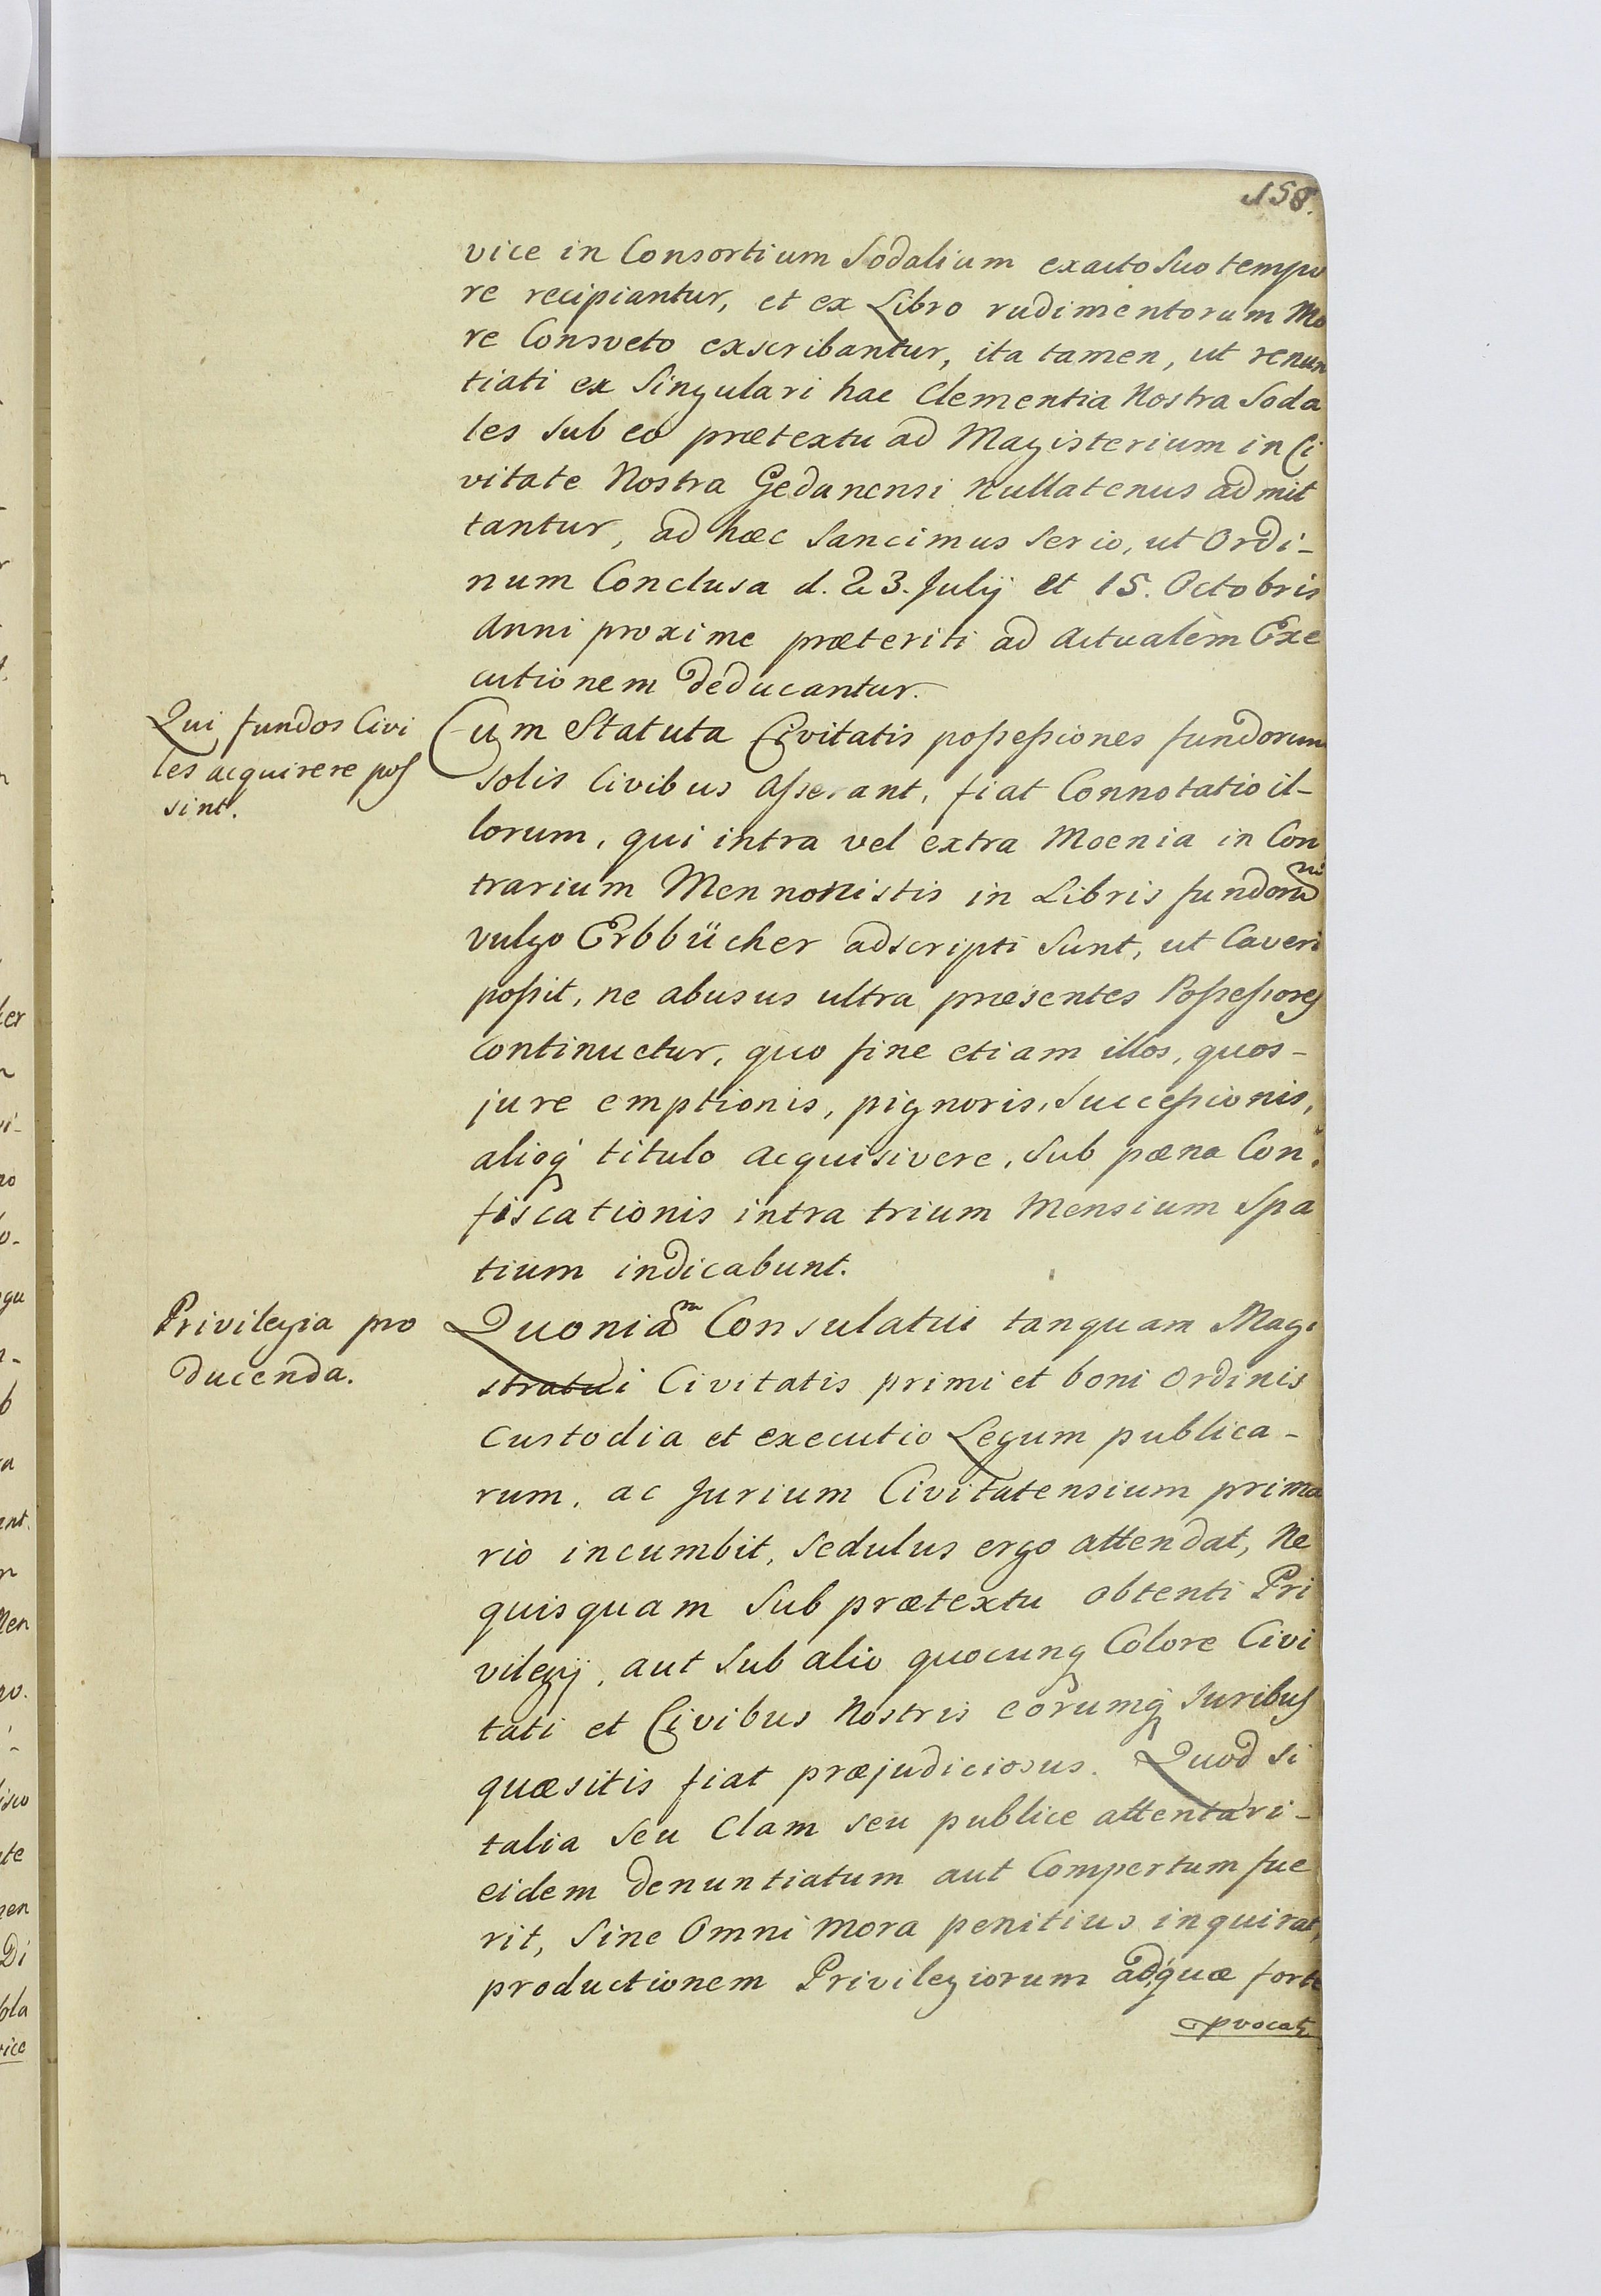 158.
vice in Consortium Sodalium exacto Suo tempo
re recipiantur, et ex Libro rudimentorum Mo
re Consveto exscribantur, ita tamen, ut renun
tiati ex Singulari hac Clementia Nostra Soda
les Sub eo prætextu ad Magisterium in Ci
vitate Nostra Gedanensi Nullatenus admit
tantur, ad hæc Sancimus Serio, ut Ordi-
num Conclusa d. 23. Julij et 15. Octobris
Anni proxime præteriti ad Actualem Exe
cutionem deducantur.
Qui fundos Civi
les acquirere pos
sint.
Cum Statuta Civitatis poſseſsiones fundorum
Solis Civibus Aſserant, fiat Connotatio il-
lorum, qui intra vel extra Moenia in Con
trarium Mennonistis in Libris fundorum
vulgo Erbbücher adscripti Sunt, ut Caveri
poſsit, ne abusus ultra præsentes Poſseſsores
Continuetur, quo fine etiam illos, quos-
jure emptionis, pignoris, Succeſsionis,
alioq́ titulo Acquisivere, Sub pæna Con-
fiscationis intra trium Mensium Spa
tium indicabunt.
Privilegia pro
ducenda.
Quoniam Consulatui tanquam Magi
stratui Civitatis primi et boni Ordinis
Custodia et executio Legum publica-
rum, ac Jurium Civitatensium prima
rio incumbit, Sedulus ergo attendat, Ne
quisquam Sub prætextu obtenti Pri
vilegij, aut Sub alio quocunq Colore Civi
tati et Civibus Nostris eorumq́ Juribus
quæsitis fiat præjudiciosus. Quod Si
talia Seu Clam seu publice attentari-
eidem denuntiatum aut Compertum fue
rit, Sine Omni Mora penitius inquirat,
productionem Privilegiorum ad quæ forte
provocat